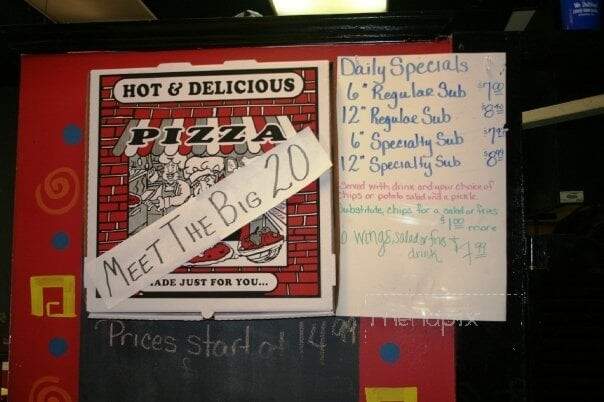 HOT & DELICIOUS
PIZZA
MEET THE BIG 20
ADE JUST FOR YOU...
Prices start at 14.99
Daily Specials
6" Regular Sub $7.00
12" Regular Sub
6" Specialty Sub
12" Specialty Sub
Served with drink and your choice of
chips or potato salad and a pickle.
Substitute chips for a salad or fries
$1.00 more
wings, salad or fries +
drink $7.99
menupix